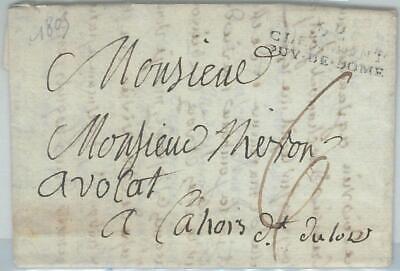 1805
CLERMONT
PUY-DE-DOME
Monsieur
Monsieur
avocat
6
a Cahors dt. du lot